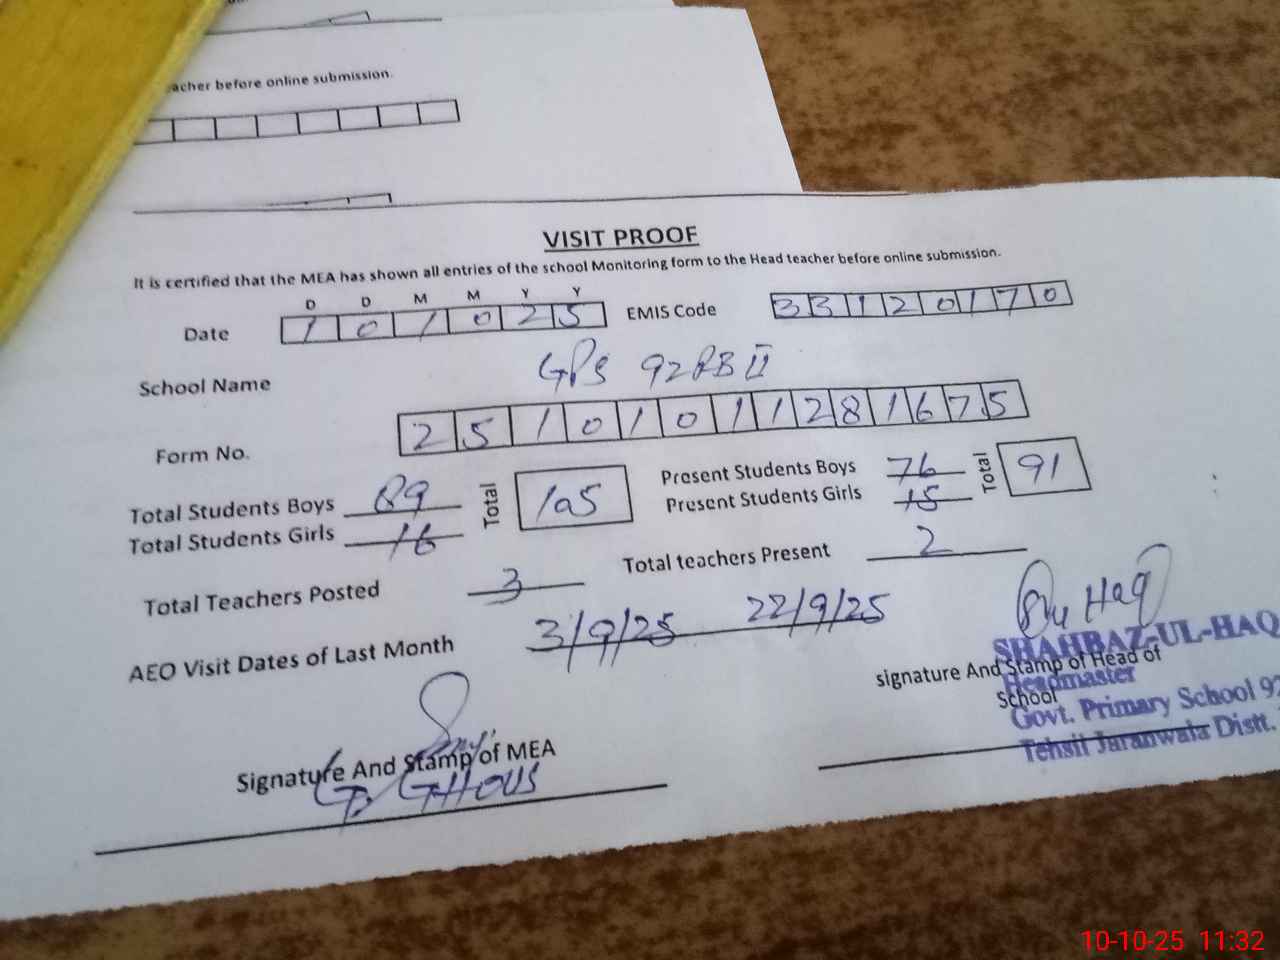 acher before online submission.
VISIT PROOF
It is certified that the MEA has shown all entries of the school Monitoring form to the Head teacher before online submission.
D D M M Y Y
Date 1 0 1 0 2 5 EMIS Code 3 3 1 2 0 1 7 0
School Name GPS 92 RB II
Form No. 2 5 1 0 1 0 1 1 2 8 1 6 7 5
Total Students Boys 89 Total 105 Present Students Boys 76 Total 91
Total Students Girls 16 Present Students Girls 15
Total Teachers Posted 3 Total teachers Present 2
AEO Visit Dates of Last Month 3/9/25 22/9/25
Haq
SHAHBAZ-UL-HAQ
signature And Stamp of Head of
Headmaster
School
Govt. Primary School 92
Tehsil Jaranwala Distt.
Signature And Stamp of MEA
G. GHOUS
10-10-25 11:32